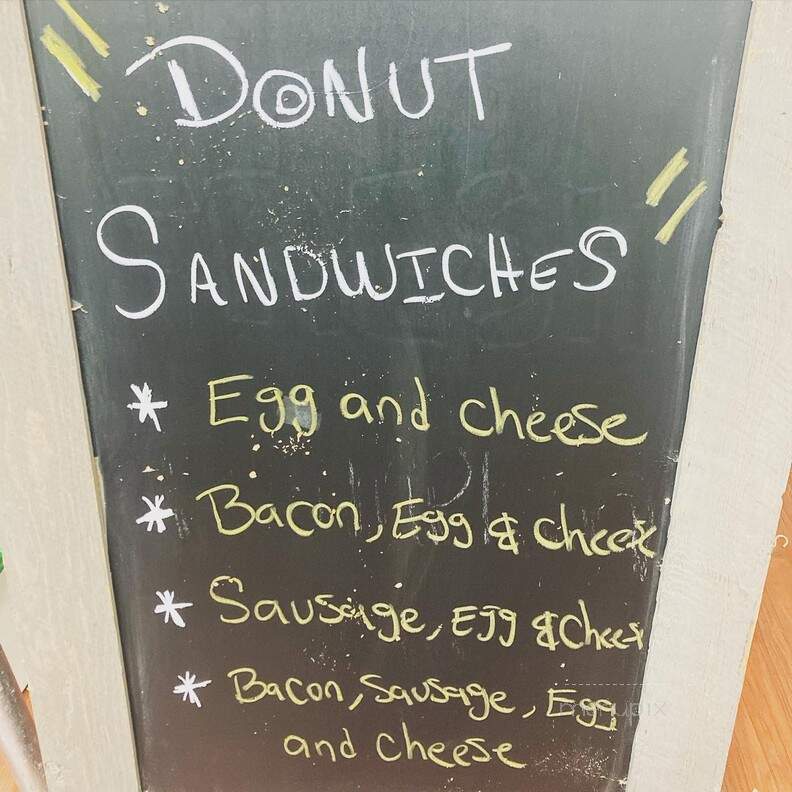 " DONUT
SANDWICHES "
* Egg and cheese
* Bacon, Egg & cheese
* Sausage, Egg & chees
* Bacon, Sausage, Egg
and cheese
menupix